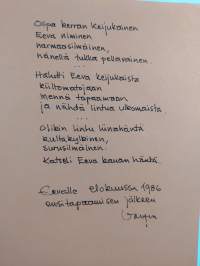 Olipa kerran Keijukainen
Eeva niminen
harmaasilmäinen,
hänellä tukka pellavainen...
Halusi Eeva keijukaista
kiiltomatojaan
mennä tapaamaan
ja nähdä lintua ulkomaista
Olikin lintu liinahäntä
kultakylkinen,
surusilmäinen.
Katseli Eeva kauan häntä.
Eevalle elokuussa 1986
ensitapaamisen jälkeen